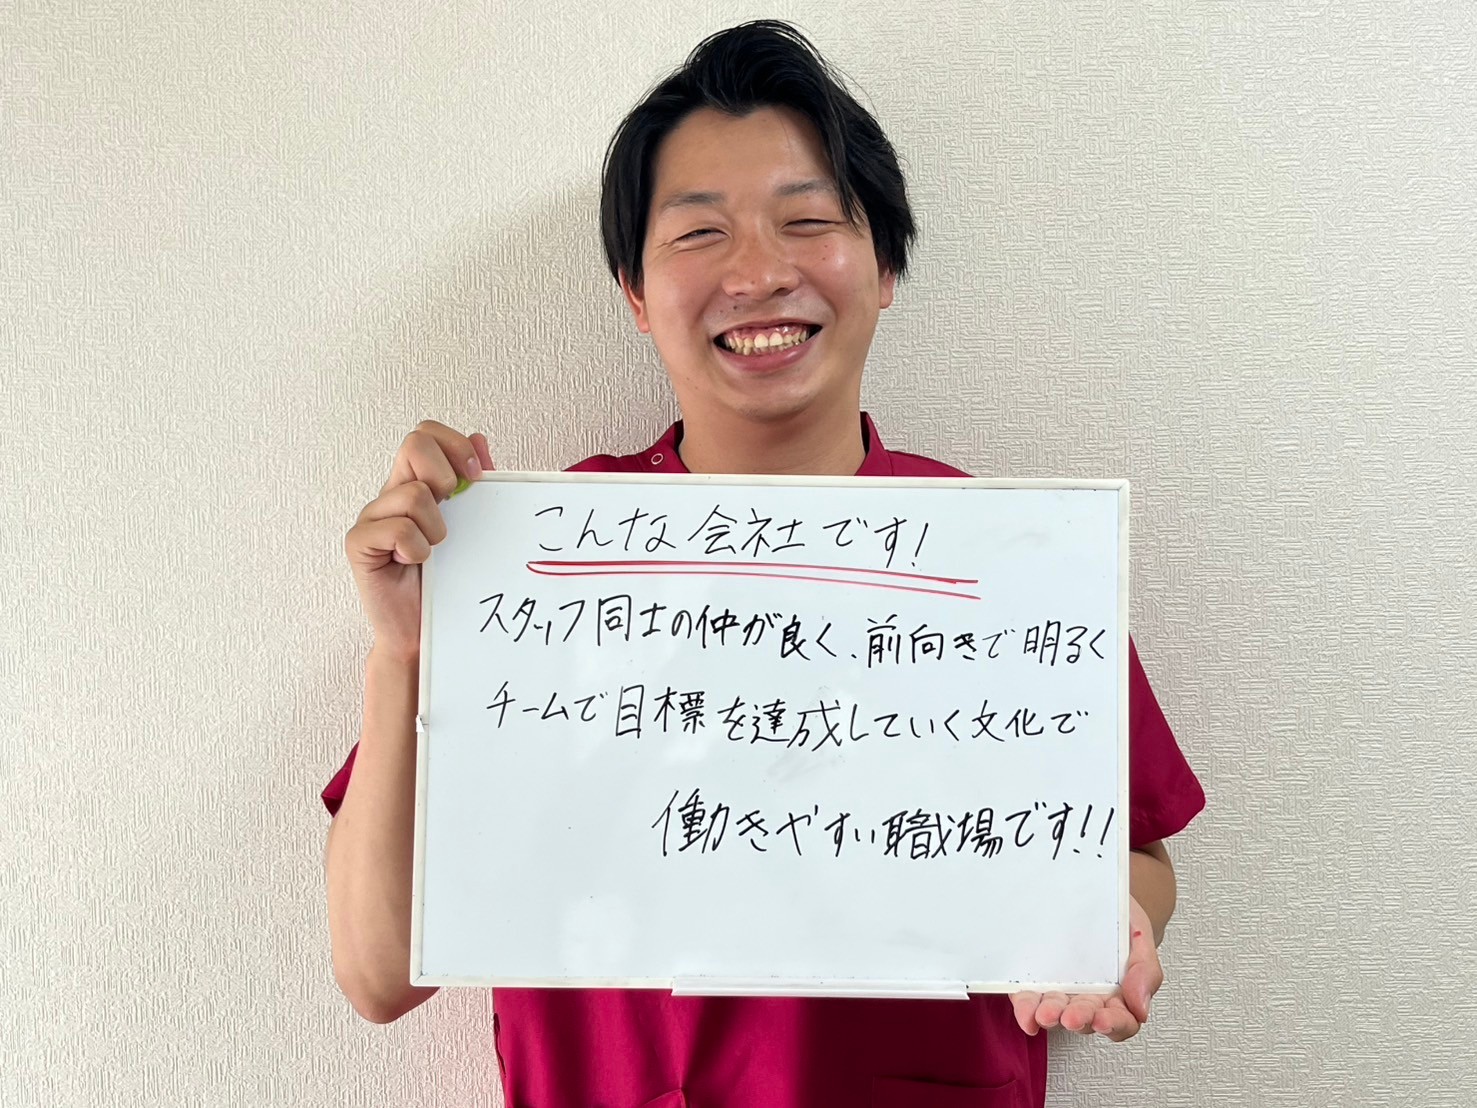 こんな会社です!
スタッフ同士の仲が良く、前向きで明るく
チームで目標を達成していく文化で
働きやすい職場です!!